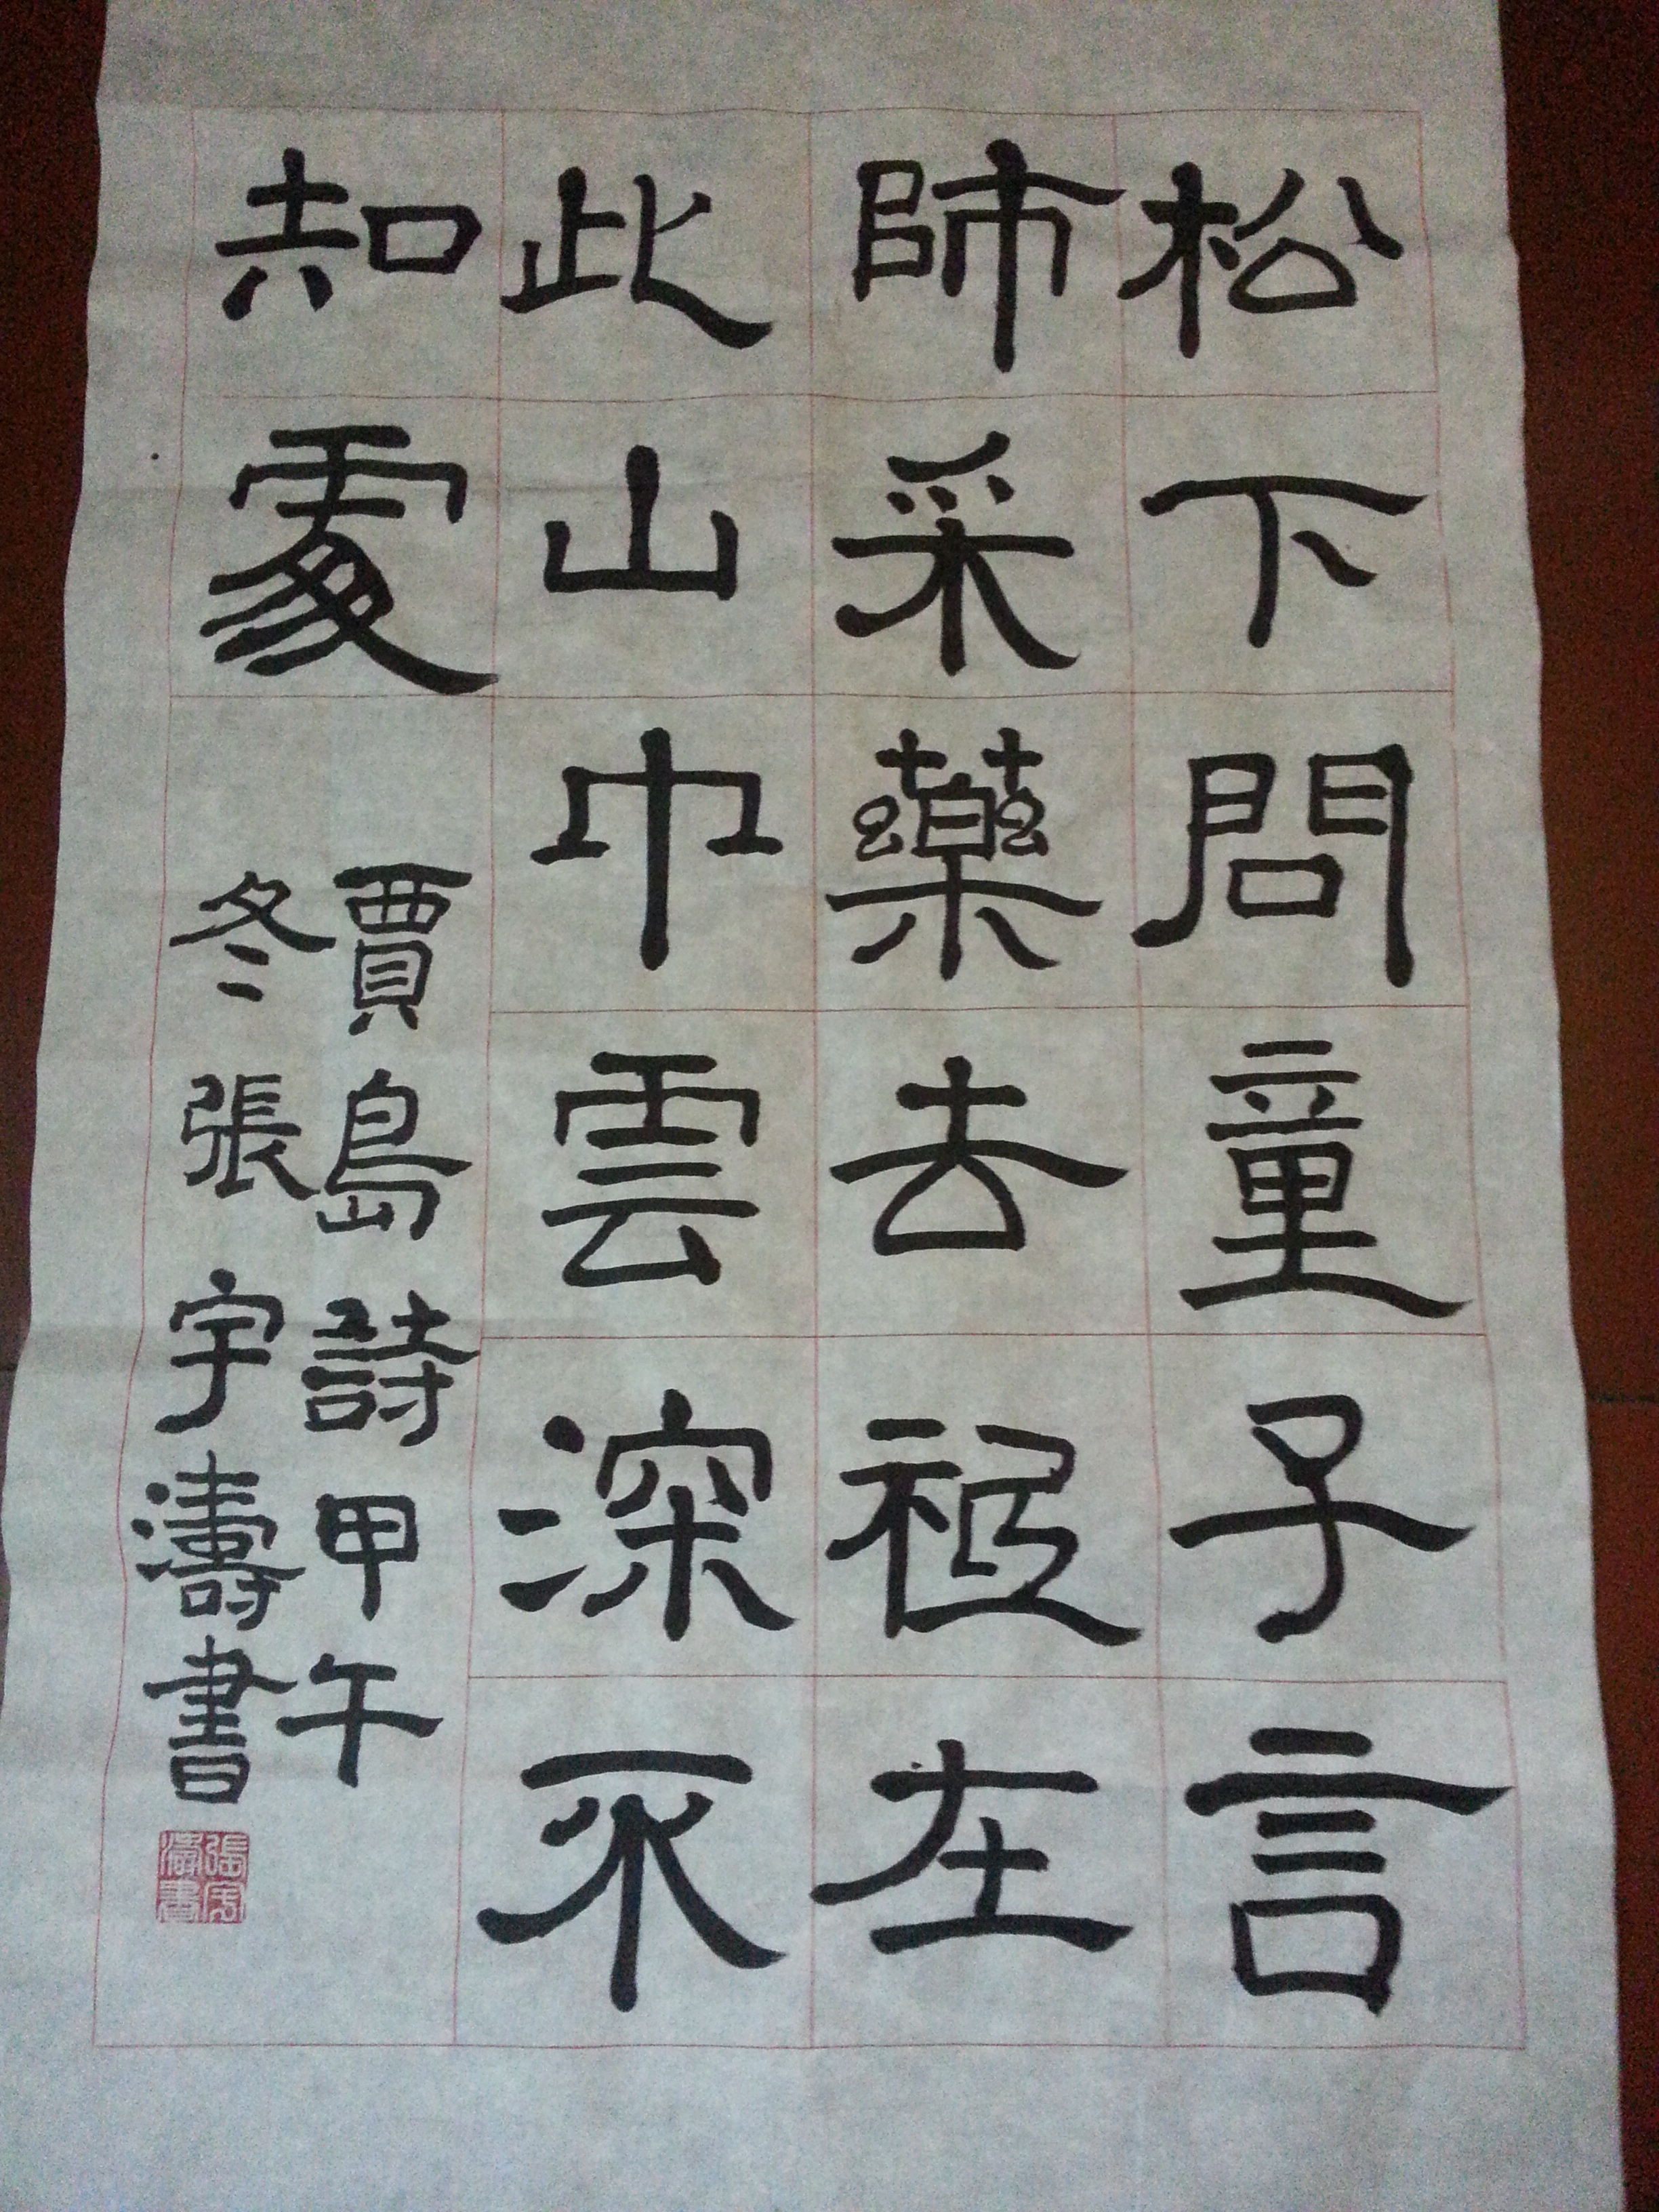 松下問童子言
師采藥去祗在
此山中雲深不
知處
賈島詩甲午
冬張宇濤書
張宇
濤書